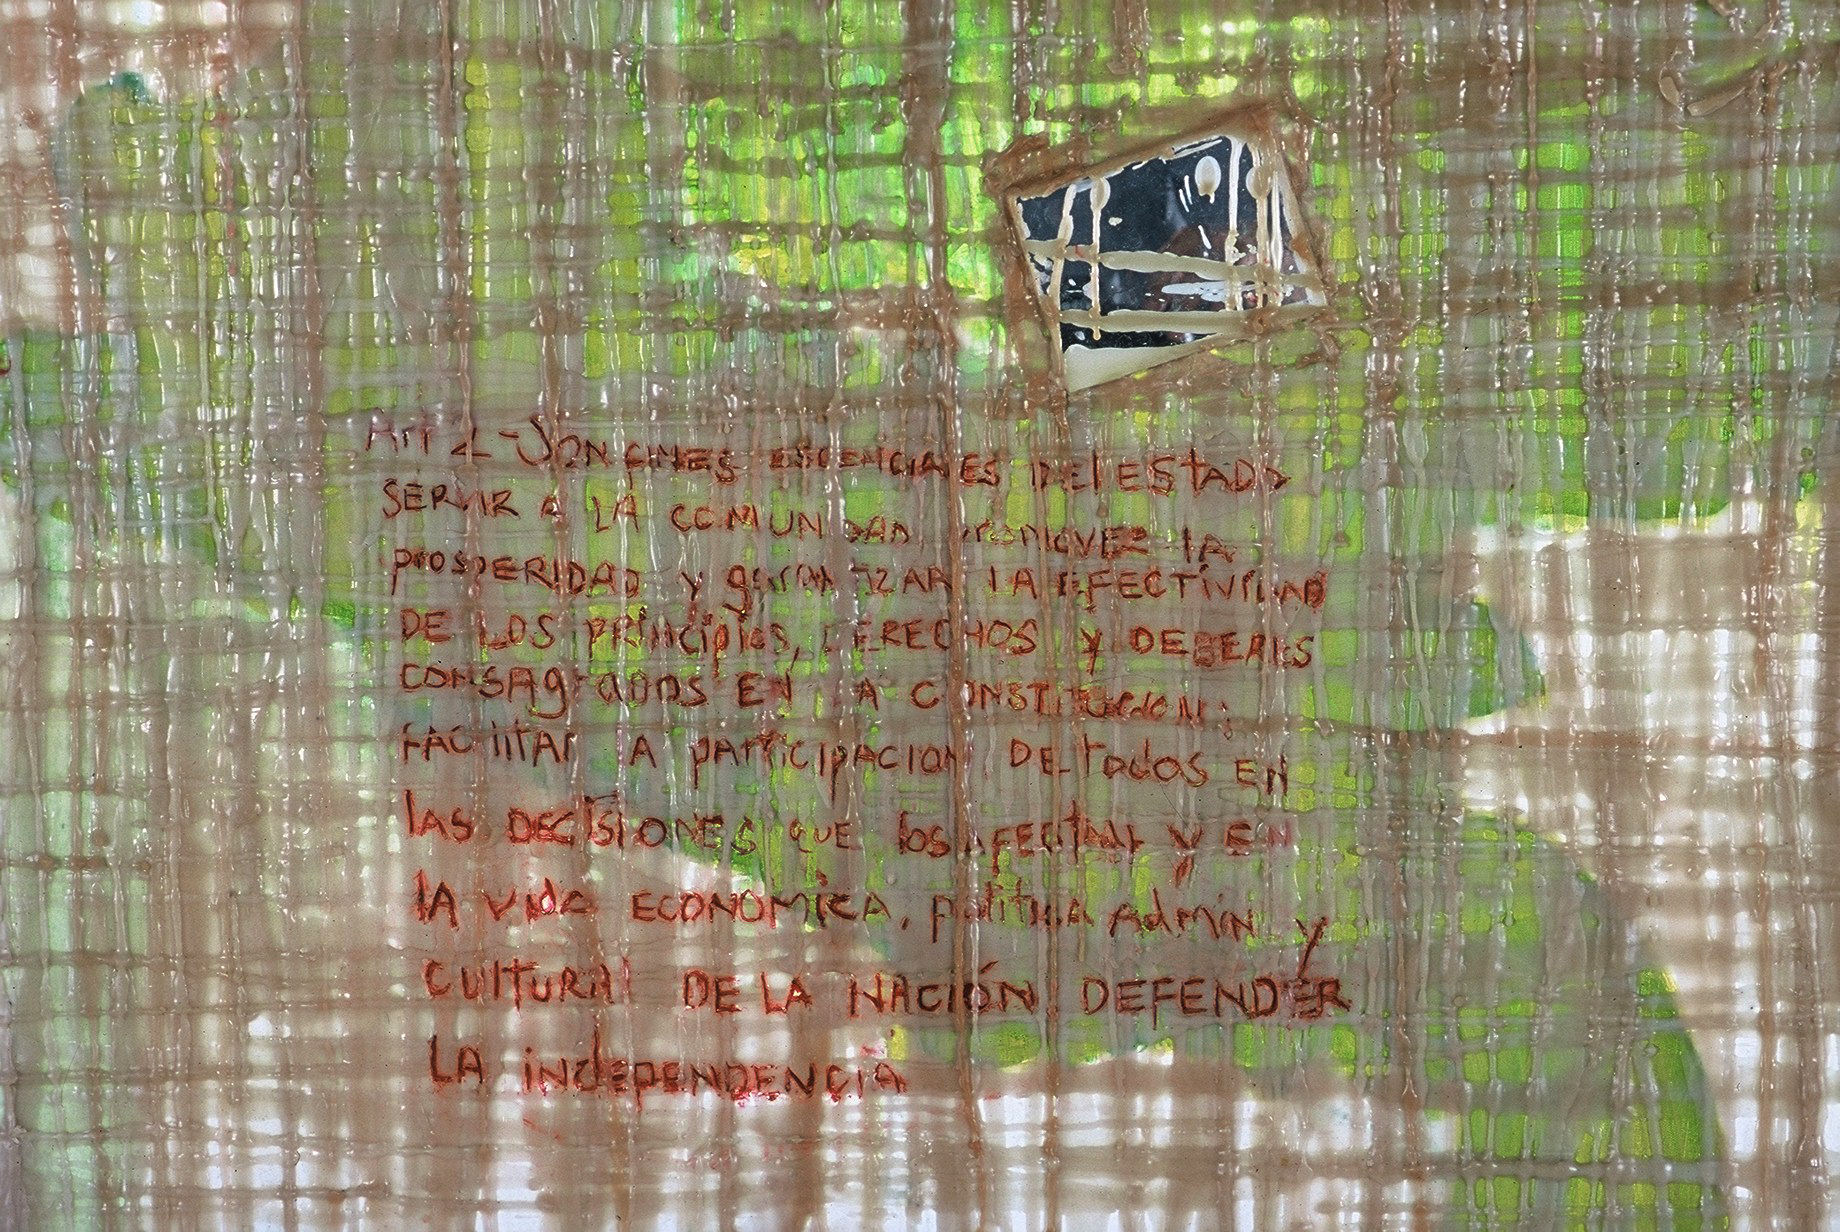 Art 2 - SON FINES ESCENCIALES DEl EStADO
SERVIR A LA COMUNIDAD, PROMOVER lA
PrOSPERIDAD y garanTIZAR LA EFECTIVIDAD
DE LOS principios, DERECHOS y DEBERES
CONSAgrADOS EN LA CONSTITUCION;
FACilitAr LA pArticipACION DE todos EN
lAS DECISIONES QUE los AFECTAN y EN
lA vida ECONOMICA, politicA Admin y
CUltURAl DE LA NACIÓN DEFENDER
LA independENCIA